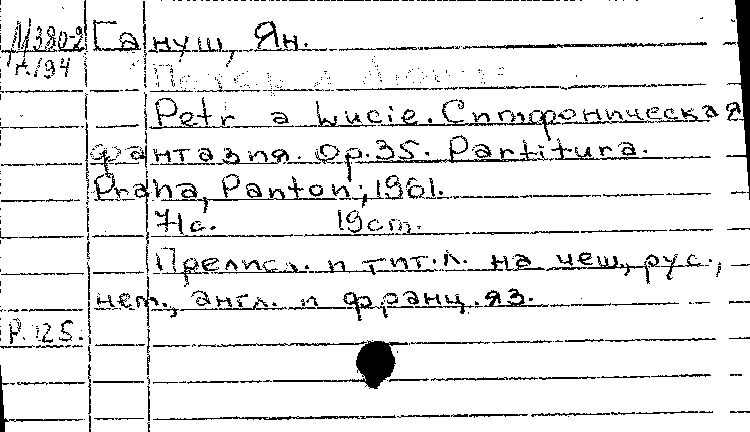 М380-2 Гануш, Ян.
н.194
Petr a Lucie. Симфоническая
фантазия. Op.35. Partitura.
Praha, Panton, 1961.
71с. 19cm.
Предисл. и тит.л. на чеш., рус.,
нем., англ. и франц.яз.
Р.125.